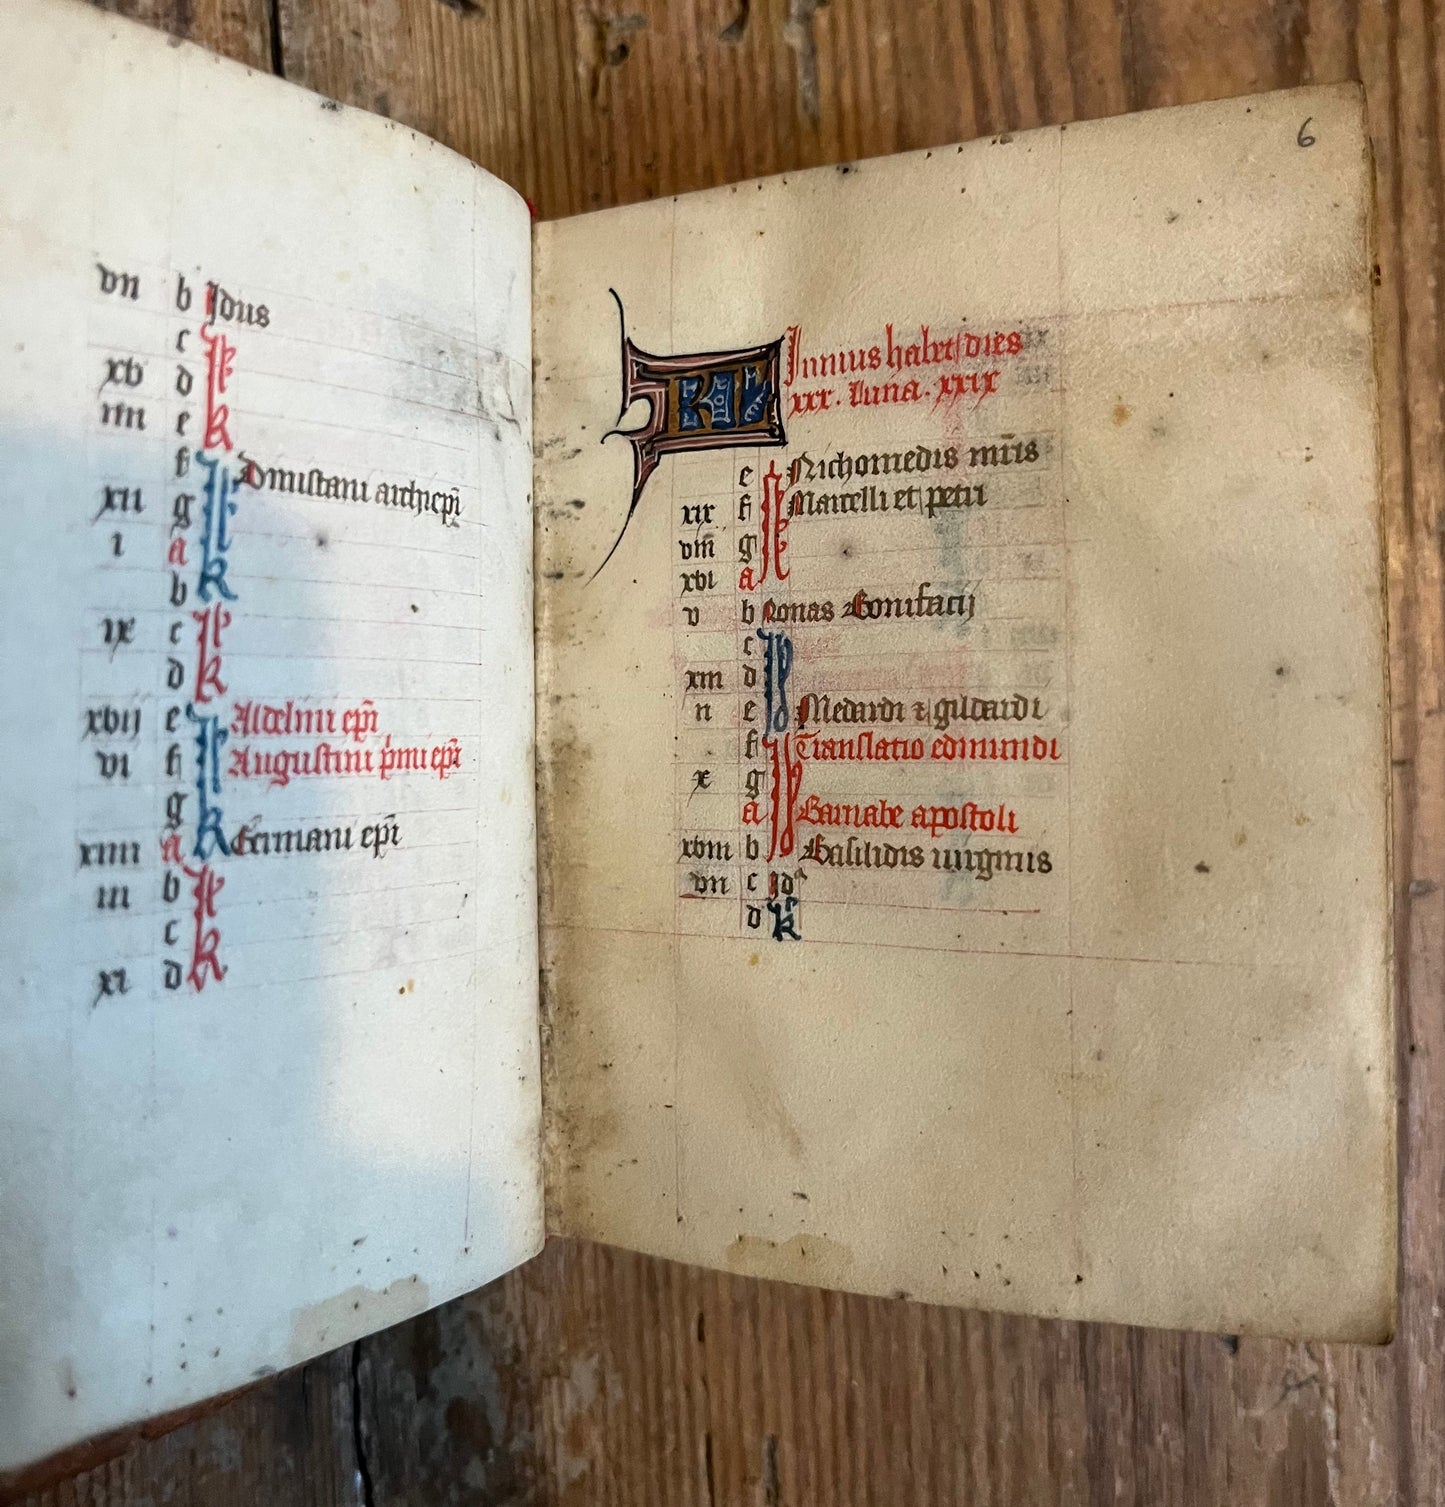 vii b Idus
c
xv d
iiii e
f Dunstani archiepi
xii g
i a
b
ix c
d
xvij e Aldelmi epi
vi f Augustini pmi epi
g
xiiii a Germani epi
iii b
c
xi d
6
KL Iunius habet dies
xxx. luna. xxix
e Nichomedis mris
xix f Marcelli et petri
viii g
xvi a
v b Nonas Bonifacij
c
xiii d
ii e Medardi ⁊ gildardi
f Translatio edmundi
x g
a Barnabe apostoli
xviii b Basilidis uirginis
vii c Id
d kl